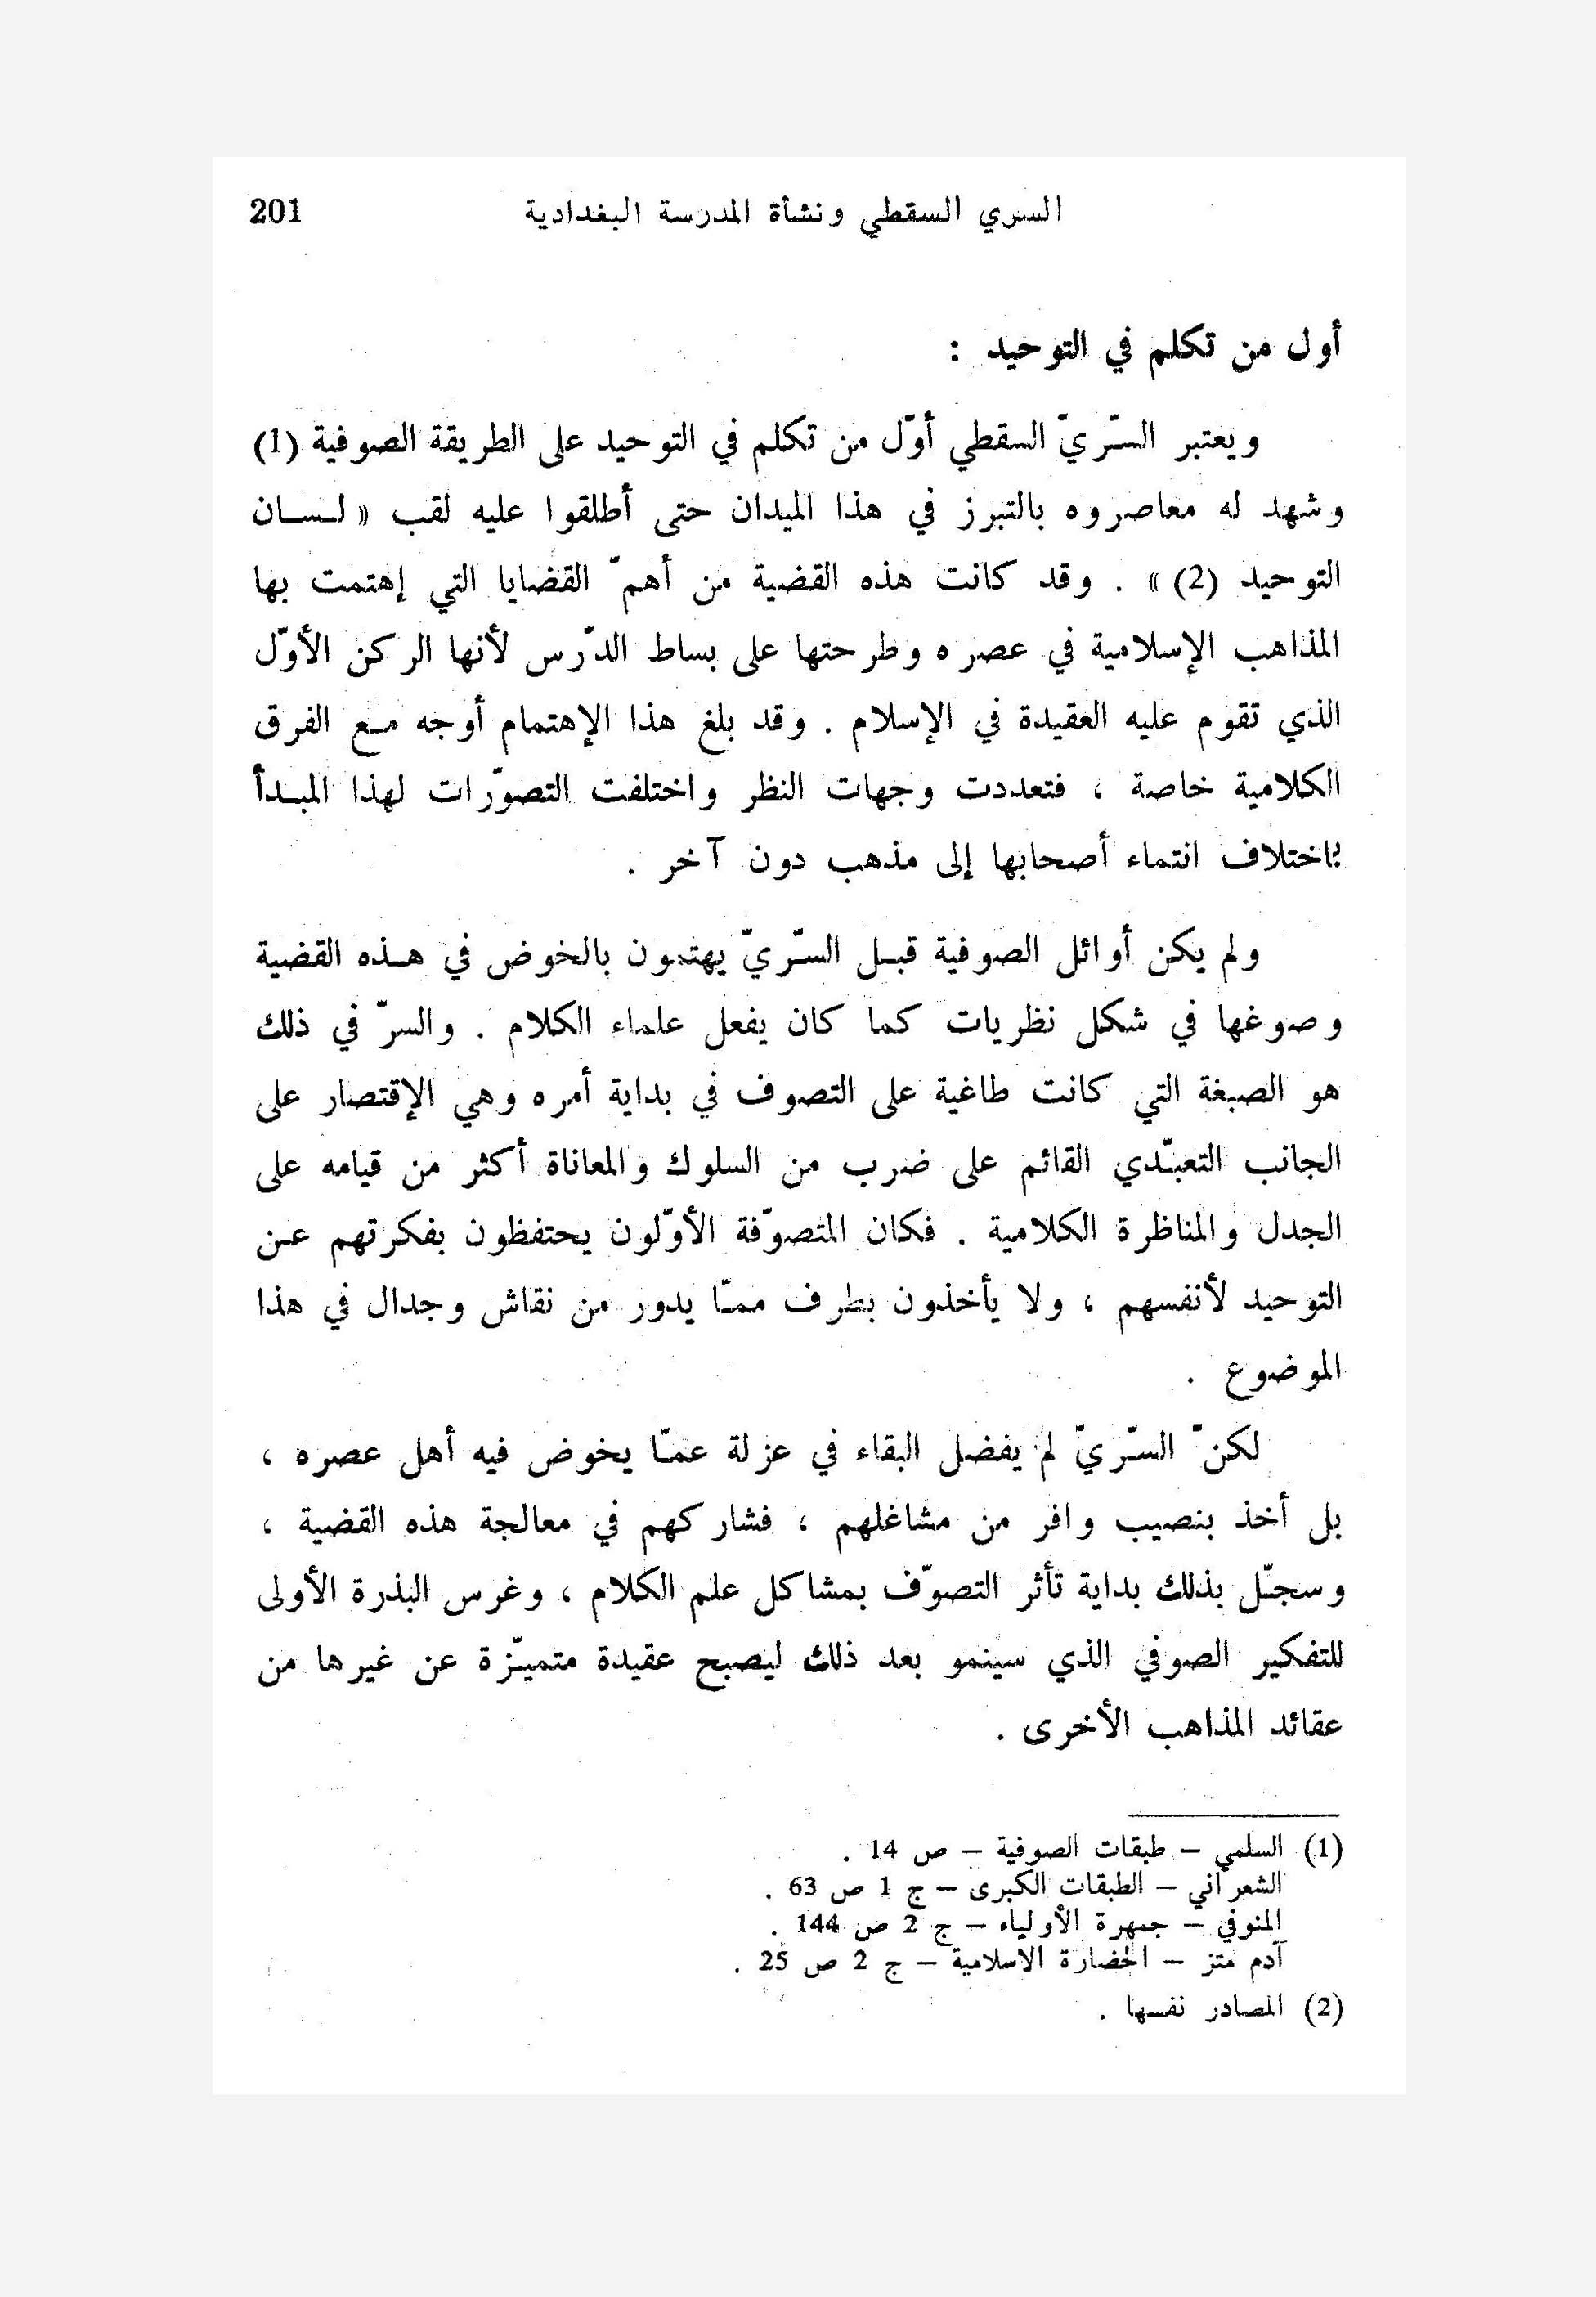 السري السقطي ونشأة المدرسة البغدادية 201
أول من تكلم في التوحيد :
ويعتبر السّريّ السقطي أوّل من تكلم في التوحيد على الطريقة الصوفية (1)
وشهد له معاصروه بالتبرز في هذا الميدان حتى أطلقوا عليه لقب « لـسـان
التوحيد (2) » . وقد كانت هذه القضية من أهمّ القضايا التي إهتمت بها
المذاهب الإسلامية في عصره وطرحتها على بساط الدّرس لأنها الركن الأوّل
الذي تقوم عليه العقيدة في الإسلام . وقد بلغ هذا الإهتمام أوجه مـع الفرق
الكلامية خاصة ، فتعددت وجهات النظر واختلفت التصوّرات لهذا المبـدأ
باختلاف انتماء أصحابها إلى مذهب دون آخر .
ولم يكن أوائل الصوفية قبـل السّريّ يهتمون بالخوض في هـذه القضية
وصوغها في شكل نظريات كما كان يفعل علماء الكلام . والسرّ في ذلك
هو الصبغة التي كانت طاغية على التصوف في بداية أمره وهي الإقتصار على
الجانب التعبّدي القائم على ضرب من السلوك والمعاناة أكثر من قيامه على
الجدل والمناظرة الكلامية . فكان المتصوّفة الأوّلون يحتفظون بفكرتهم عـن
التوحيد لأنفسهم ، ولا يأخذون بطرف ممـّا يدور من نقاش وجدال في هذا
الموضوع .
لكنّ السّريّ لم يفضل البقاء في عزلة عمـّا يخوض فيه أهل عصره ،
بل أخذ بنصيب وافر من مشاغلهم ، فشاركهم في معالجة هذه القضية ،
وسجـّل بذلك بداية تأثر التصوّف بمشاكل علم الكلام ، وغرس البذرة الأولى
للتفكير الصوفي الذي سينمو بعد ذلك ليصبح عقيدة متميـّزة عن غيرها من
عقائد المذاهب الأخرى .
(1) السلمي – طبقات الصوفية – ص 14 .
الشعراني – الطبقات الكبرى – ج 1 ص 63 .
المنوفي – جمهرة الأولياء – ج 2 ص 144 .
آدم متز – الحضارة الاسلامية – ج 2 ص 25 .
(2) المصادر نفسها .